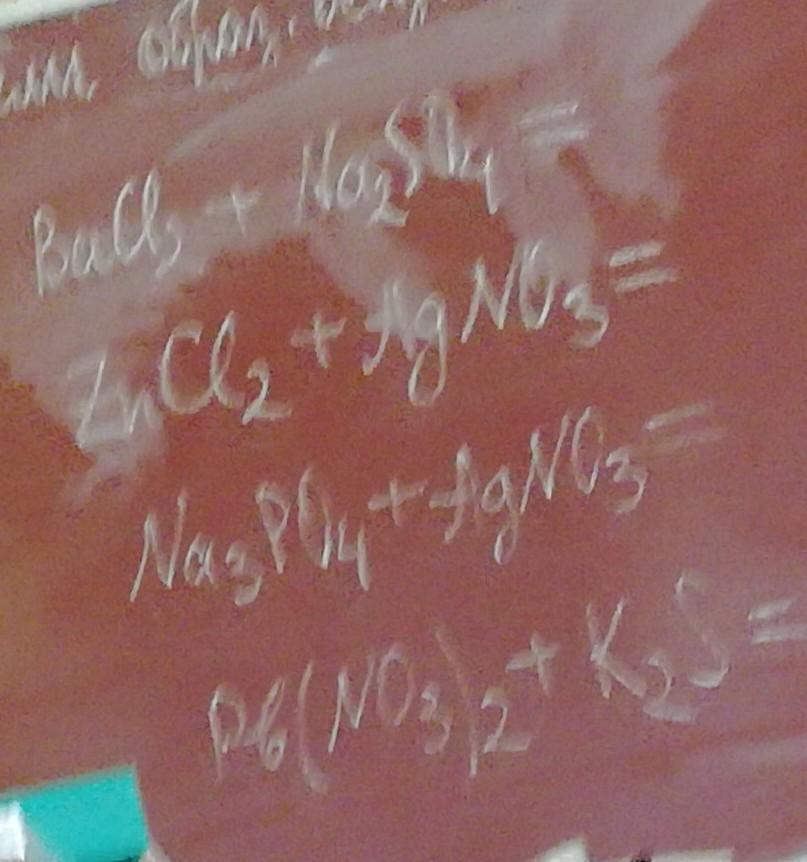 образ.
BaCl2 + Na2SO4 =
ZnCl2 + AgNO3 =
Na3PO4 + AgNO3 =
Pb(NO3)2 + K2S =